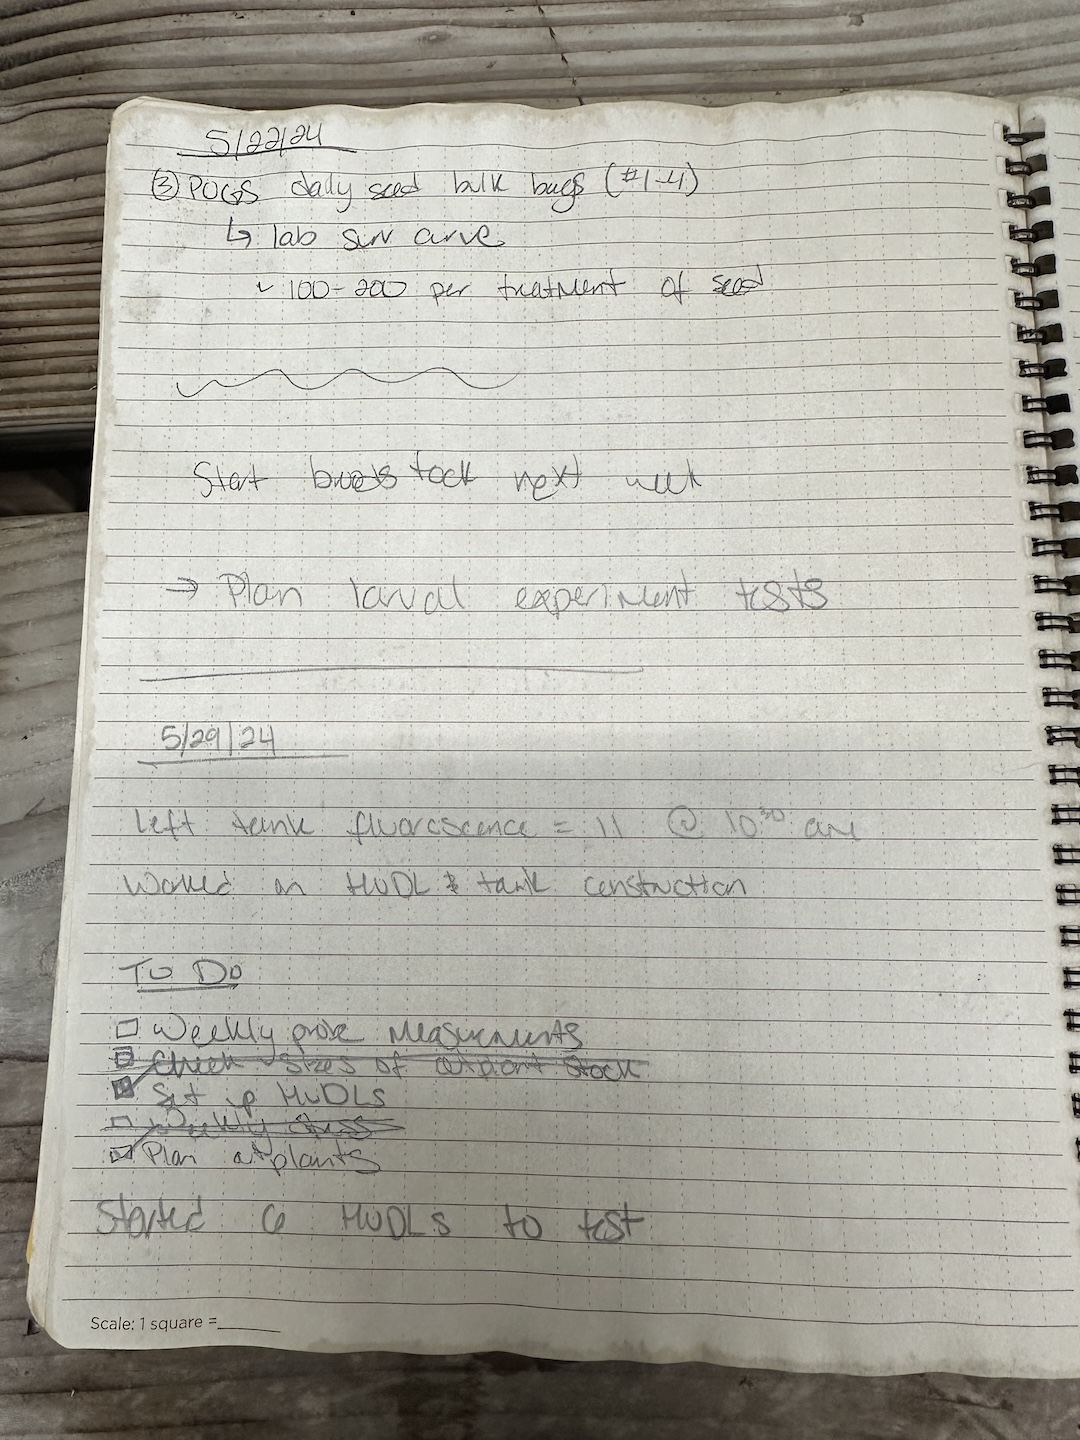 5/22/24
③ POGS daily seed bulk bags (#1-4)
↳ lab surv curve
100-200 per treatment of seed
Start bugstock next week
→ Plan larval experiment tests
5/29/24
Left tank fluorescence = 11 @ 10³⁰ am
Worked on HUDL & tank construction
To Do
Weekly probe Measurements
Check sizes of outplant stock
Set up HUDLs
Weekly
Plan outplants
Started 6 HUDLs to test
Scale: 1 square =______